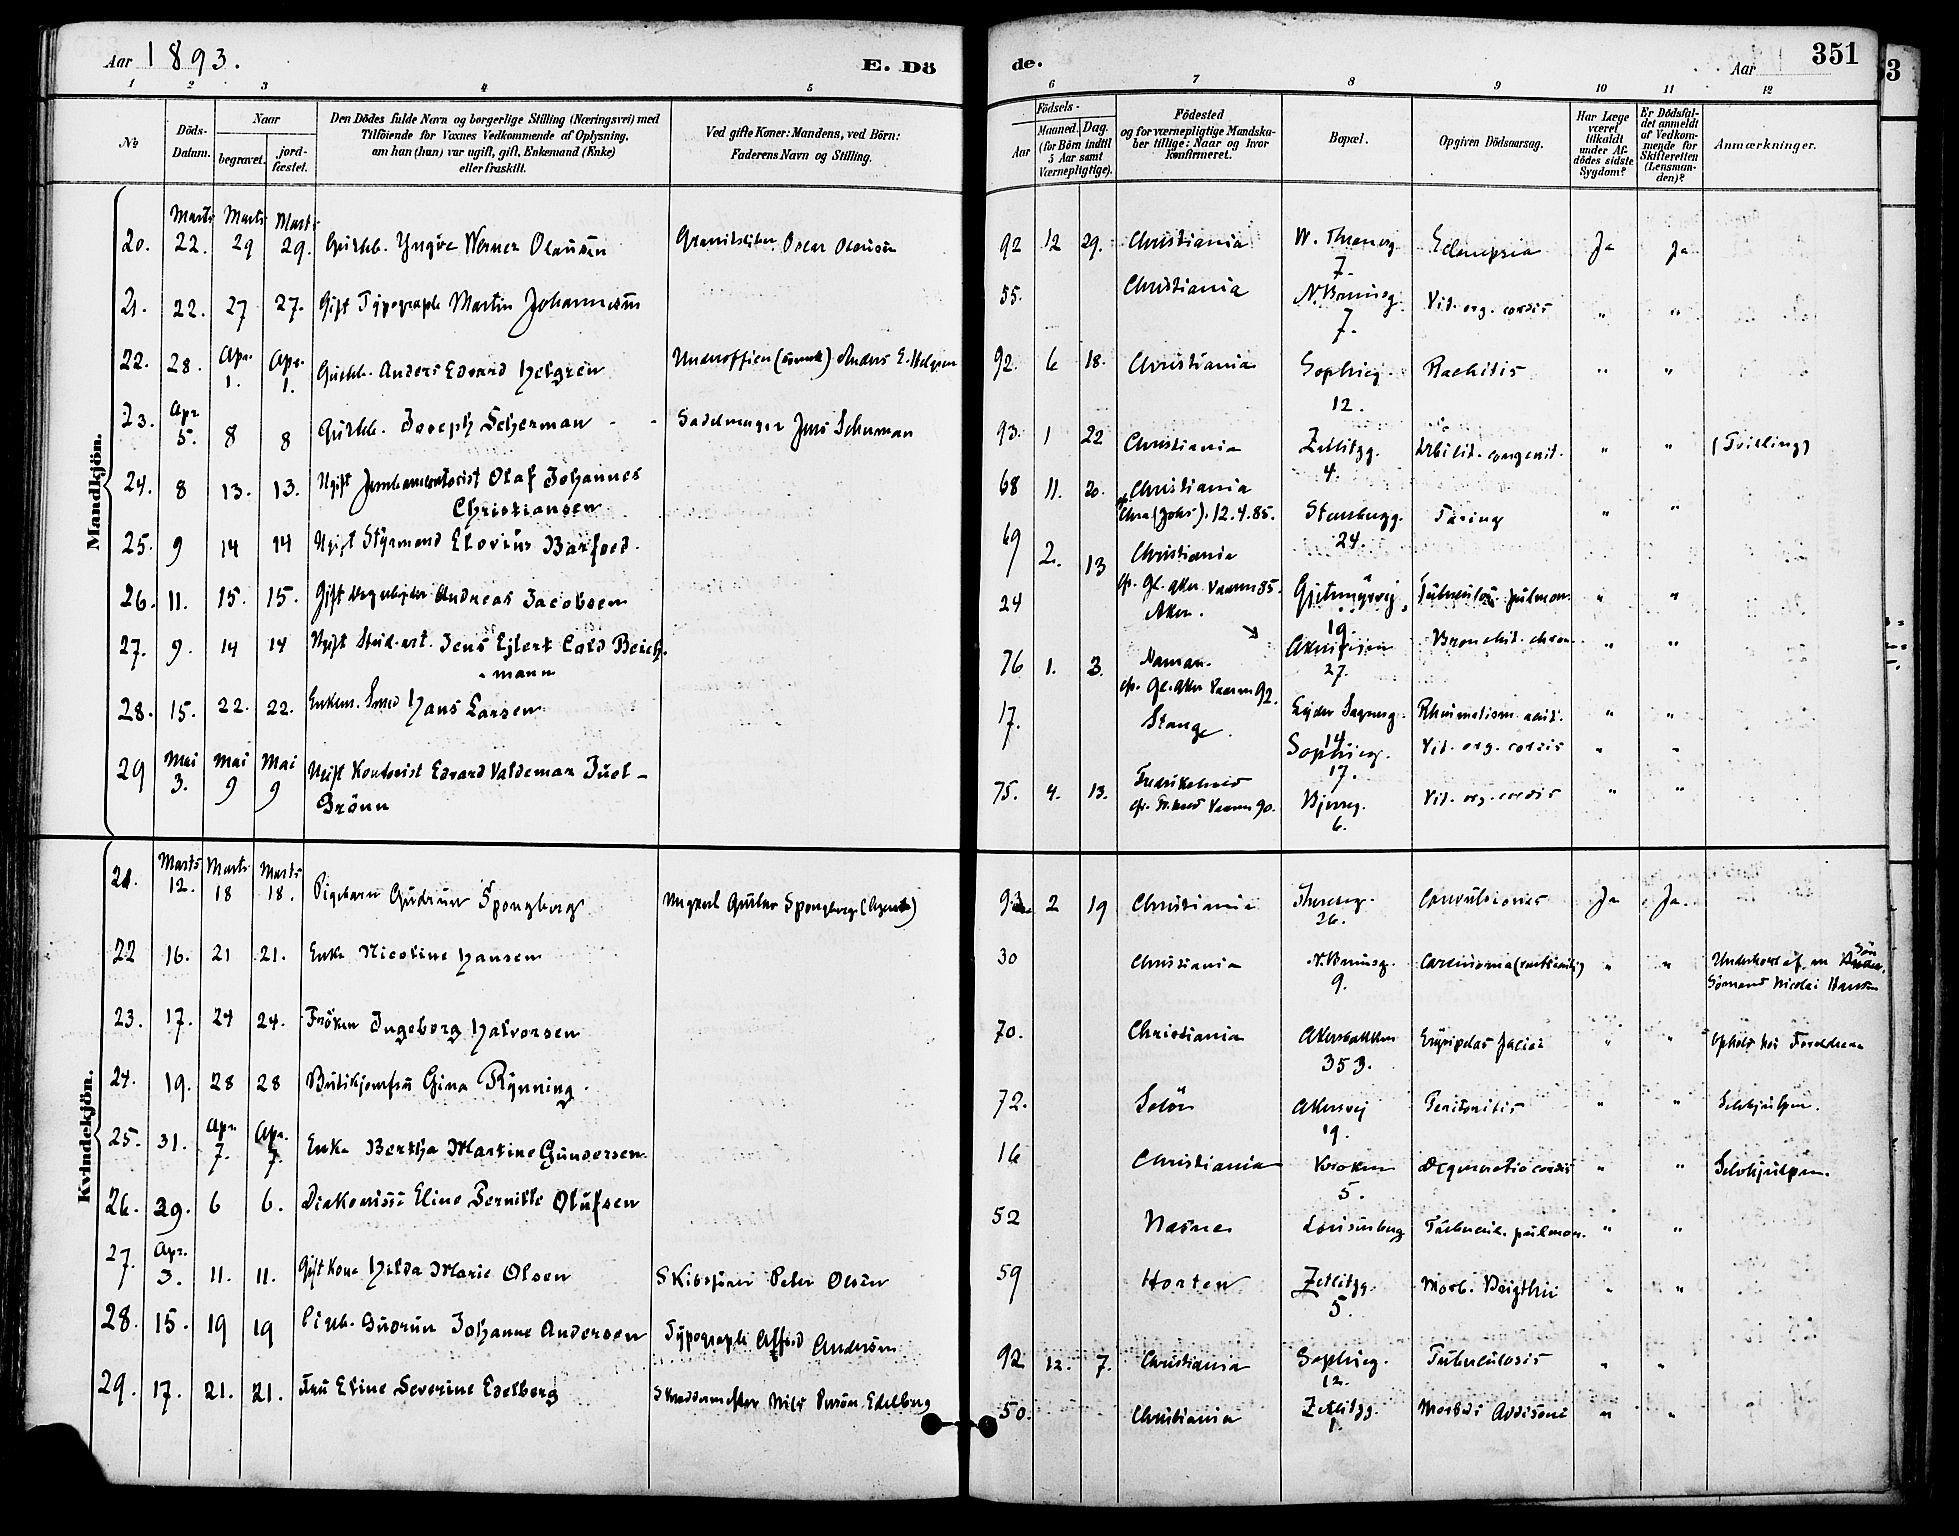 Aar 1893.
E. Dö
de.
Aar
351
1 2 3 4 5 6 7 8 9 10 11 12
No
Döds-Datum.
Naar
begravet.
jord-fæstet.
Den Dödes fulde Navn og borgerlige Stilling (Næringsvei) med
Tilföiende for Voxnes Vedkommende af Oplysning,
om han (hun) var ugift, gift, Enkemand (Enke)
eller fraskilt.
Ved gifte Koner: Mandens, ved Börn:
Faderens Navn og Stilling.
Födsels-
Aar
Maaned. Dag.
(for Börn indtil
5 Aar samt
Værnepligtige).
Födested
og for værnepligtige Mandska-
ber tillige: Naar og hvor
konfirmeret.
Bopæl.
Opgiven Dödsaarsag.
Har Læge
været
tilkaldt
under Af-
dödes sidste
Sygdom?
Er Dödsfal-
det anmeldt
af Vedkom-
mende for
Skifteretten
(Lensman-
den)?
Anmærkninger.
Mandkjön.
20. Marts 22. Marts 29 Marts 29. Gutteb. Yngve Werner Olausen Oscar Olausen 92 12 29. Christiania W. Thraneg. 7. Eclampsia Ja Ja
21. 22. 27 27. Gift Typograph Martin Johannesen 55. Christiania N. Bruunsg. 7. Vit. org. cordis " "
22. 28. Apr. 1. Apr. 1. Gutteb. Anders Edvard Helgren Underofficer Anders E. Helgren 92. 6 18. Christiania Sophieg. 12. Rachitis " "
23. Apr 5. 8 8 Gutteb. Joseph Scherman Sadelmager Jens Scherman 93. 1 22 Christiania Zetlitzg. 4. Debilit. congenit. " " (Tvilling)
24. 8 13. 13. Ugift Olaf Johannes
Christiansen 68 11. 20. Christiania
Chra (Johs). 12.4.85. Stensbergg. 24. " "
25. 9 14 14 Ugift Styrmand Elovius Barfoed. 69 2. 13 Christiania
cf. Gl. Aker Vaaren 85. Gjetmyrsvej 19. Tuberculos. pulmon. " "
26. 11. 15. 15. Gift Andreas Jacobsen 24 Aker. 27. Bronchit. chron. " "
27. 9. 14 14 Ugift Stud. art. Jens Ejlert Cold Beich-
mann 76 1. 3. Hamar.
cf. Gl. Aker Vaaren 92. Ejler Sagensg. 14 Rheumatism. acut. " "
28. 15. 22. 22. Enkem. Smed Hans Larsen 17. Stange. Sophieg. 17. Vit. org. cordis " "
29 Mai 3. Mai 9 Mai 9 Ugift Kontorist Edvard Valdemar Juel-
Brönn 75. 4. 13. Fredrikshald
cf. Fr.hald Vaaren 90. Bjerreg. 6. Vit. org. cordis " "
Kvindekjön.
21. Marts 12. Marts 18 Marts 18. Pigebarn Gudrun Spongberg Ungkarl Gustav Spongberg (Agent) 93 2 19 Christiania Thereseg. 26. Convulsiones Ja Ja.
22 16. 21 21. Enke Nicoline Hansen 30 Christiania N. Bruunsg. 9. Carcinoma " " Underholdt af en Sön
Sömand Nicolai Hansen
23. 17. 24 24. Fröken Ingeborg Halvorsen 70. Christiania Akersbakken 353. Erysipelas faciei " " Ophold hos Forældrene
24. 19. 28 28 Butikjomfru Gina Rynning. 72. Selön Akersvej 19. Peritonitis " " Selvhjulpen.
25. 31. Apr. 7. Apr. 7. Enke Bertha Martine Gundersen 16 Christiania Kroken 5. Degeneratio cordis " " Selvhjulpen.
26. 29. 6 6. Diakonisse Eline Pernille Olufsen 52 Næsne Lovisenberg Tuberculos. pulmon. " "
27. Apr. 3. 11. 11. Gift Kone Hilda Marie Olsen Skibsförer Peter Olsen 59 Horten Zetlitzg. 5. Morb. Brigthii " "
28. 15. 19 19 Pigeb. Gudrun Johanne Andersen Typograph Alfred Andersen 92 12. 7. Christiania Sophieg. 12. Tuberculosis " "
29. 17. 21. 21. Fru Eline Severine Edelberg Skræddermester Nils Person Edelberg 50. Christiania Zetlitzg. 1. Morbus Addisoni " "